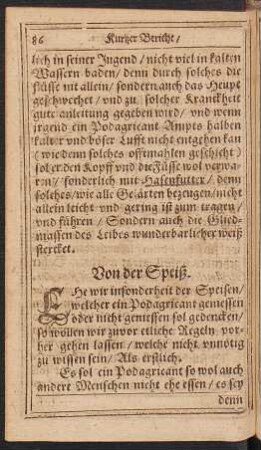 86 Kurtzer Bericht/
lich in seiner Jugend/ nicht viel in kalten
Wassern baden/ denn durch solches die
Füsse nit allein/ sondern auch das Heupt
geschwechet/ und zu solcher Kranckheit
gute anleitung gegeben wird/ und wenn
irgend ein Podagricant Ampts halben
kalter und böser Lufft nicht entgehen kan
(wie denn solches offtmahlen geschicht)
sol er den Kopff und die Füsse wol verwa-
ren/ sonderlich mit Hasenfutter/ denn
solches/ wie alle Gelärten bezeugen/ nicht
allein leicht und gering ist zum tragen/
und führen/ Sondern auch die Glied-
massen des Leibes wunderbarlicher weiß
stercket.
Von der Speiß.
EHe wir insonderheit der Speisen/
welcher ein Podagricant geniessen
oder nicht geniessen sol gedencken/
so wollen wir zuvor etliche Regeln vor-
her gehen lassen/ welche nicht unnötig
zu wissen sein/ Als erstlich.
Es sol ein Podagricant so wol auch
andere Menschen nicht ehe essen/ es sey
denn